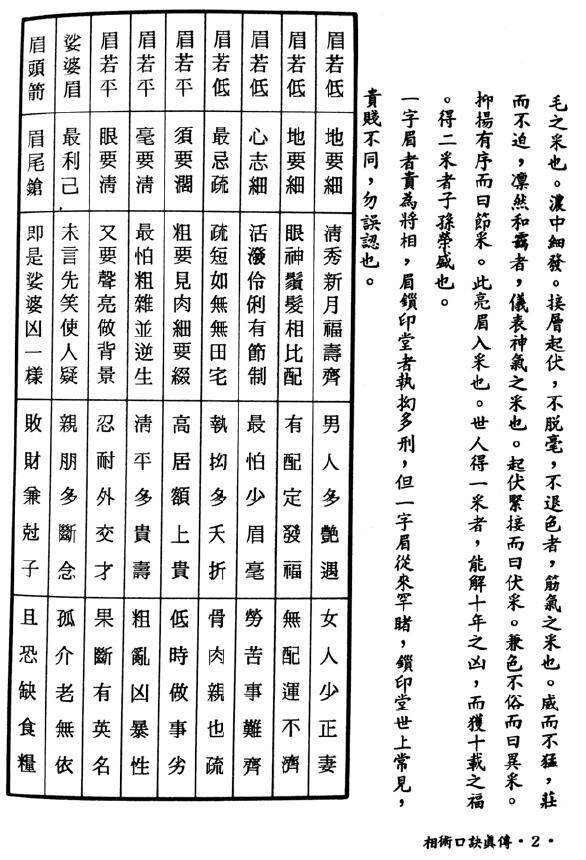 毛之采也。濃中細發。接層起伏，不脱毫，不退色者，筋氣之采也。威而不猛，莊
而不迫，凛然和靄者，儀表神氣之采也。起伏緊接而曰伏采。兼色不俗而曰異采。
抑揚有序而曰節采。此亮眉入采也。世人得一采者，能解十年之凶，而獲十載之福
。得二采者子孫榮盛也。
一字眉者貴為將相，眉鎖印堂者執拗多刑，但一字眉從來罕睹，鎖印堂世上常見，
貴賤不同，勿誤認也。
眉若低 地要細 清秀新月福壽齊 男人多艷遇 女人少正妻
眉若低 地要細 眼神鬚髮相比配 有配定發福 無配運不濟
眉若低 心志細 活潑伶俐有節制 最怕少眉毫 勞苦事難齊
眉若低 最忌疏 疏短如無無田宅 執拗多夭折 骨肉親也疏
眉若平 須要濶 粗要見肉細要綴 高居額上貴 低時做事劣
眉若平 毫要清 最怕粗雜並逆生 清平多貴壽 粗亂凶暴性
眉若平 眼要清 又要聲亮做背景 忍耐外交才 果斷有英名
娑婆眉 最利己 未言先笑使人疑 親朋多斷念 孤介老無依
眉頭箭 眉尾鎗 即是娑婆凶一樣 敗財兼尅子 且恐缺食糧
相術口訣眞傳・2・